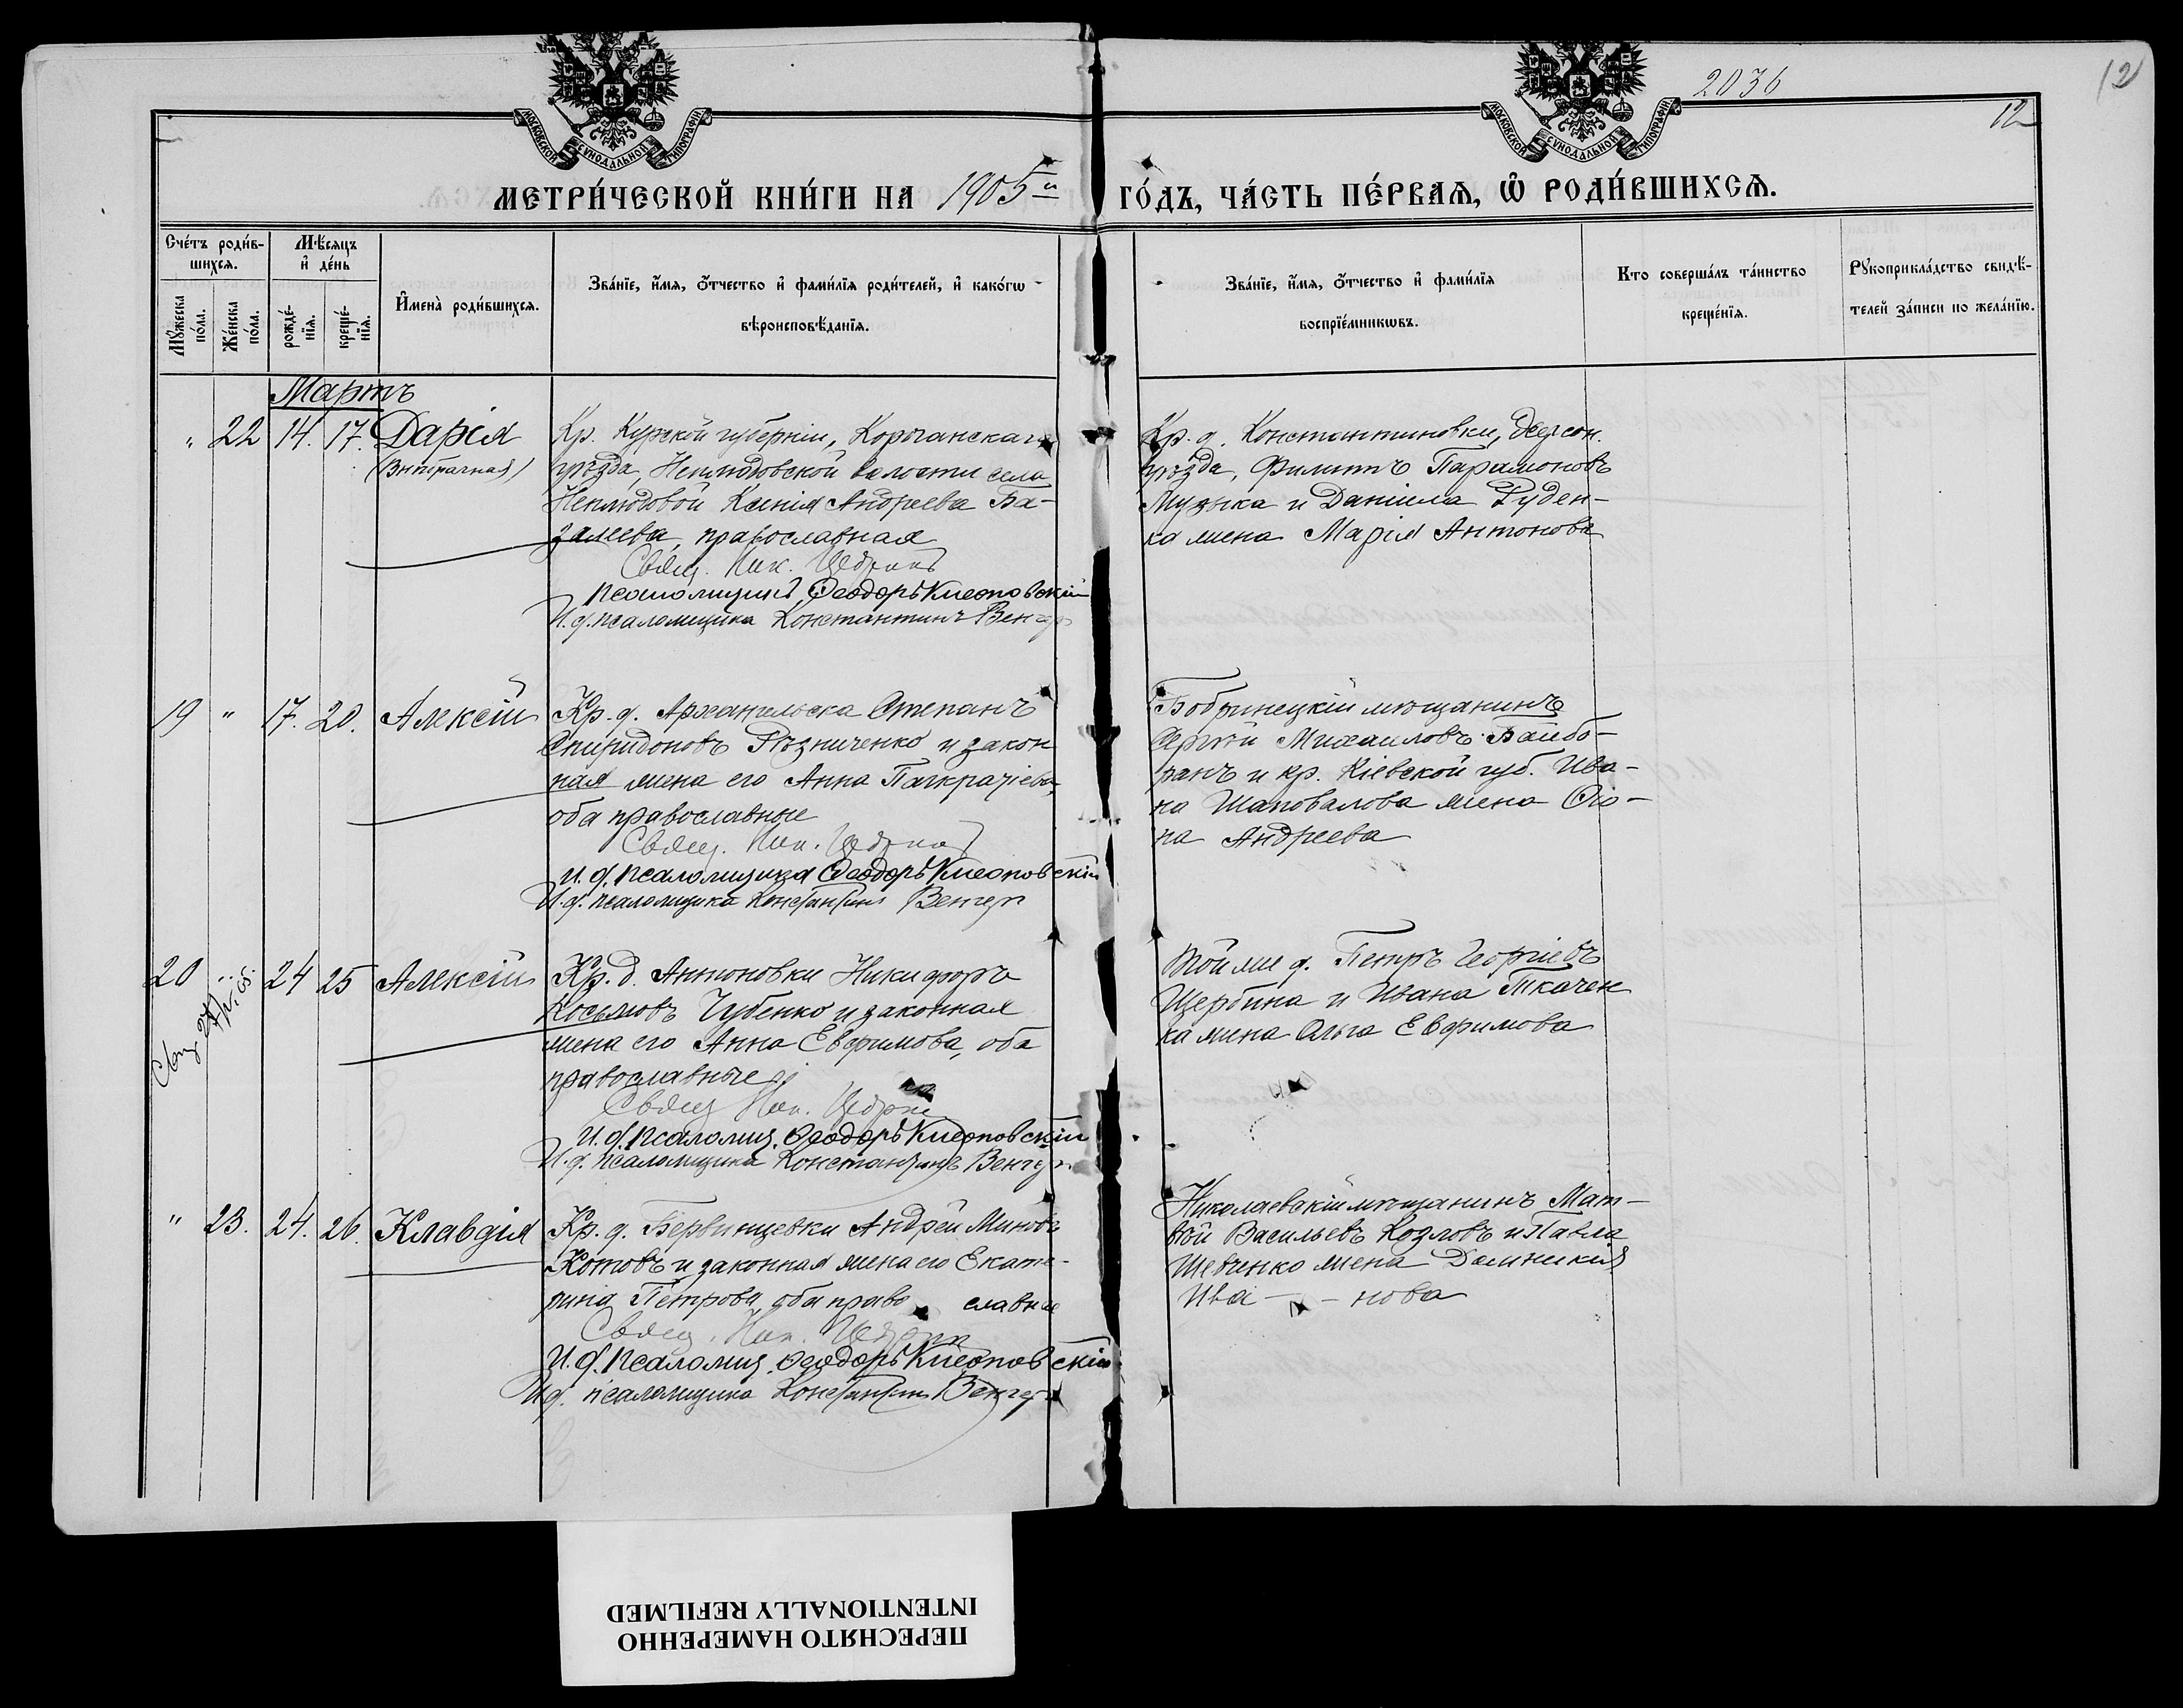 2036
12
12
МОСКОВСКОЙ СѴНОДАЛЬНОЙ ТИПОГРАФІИ
МОСКОВСКОЙ СѴНОДАЛЬНОЙ ТИПОГРАФІИ
МЕТРИ́ЧЕСКОЙ КНИ́ГИ НА 1905й ГО́ДЪ, ЧА́СТЬ ПЕ́РВАѦ, Ѽ РОДИ́ВШИХСѦ.
Сче́тъ роди́в-
шихсѧ.
Мѣ́сѧцъ
и҆ де́нь
Мꙋ́жеска
по́ла.
Же́нска
по́ла.
рожде́-
нїѧ.
креще́-
нїѧ.
И҆мена̀ роди́вшихсѧ.
Зва́нїе, и҆́мѧ, ѻ҆́тчество и҆ фами́лїѧ роди́телей, и҆ како́гѡ
вѣроисповѣ́данїѧ.
Зва́нїе, и҆́мѧ, ѻ҆́тчество и҆ фами́лїѧ
воспрїе́мникѡвъ.
Кто соверша́лъ та́инство
креще́нїѧ.
Рꙋкоприкла́дство свидѣ́-
телей за́писи по жела́нїю.
Мартъ
" 22 14. 17. Дарія
(Внѣбрачная)
Кр. Курской губерніи, Корочанскаго
уѣзда, Неплюевской волости села
Неплюевой Ксенія Андреева Ба-
залеева, православная
Свящ. Ник.
Псаломщикъ Ѳеодоръ Клеоповскій
И. д. псаломщика Константинъ Венгер
Кр. д. Константиновки, Херсон.
уѣзда, Филиппъ Парамоновъ
Музыка и Даніила Руден-
ка жена Марія Антонова
19 " 17. 20. Алексій
Кр. д. Архангельска Степанъ
Спиридоновъ Рѣзниченко и закон
ная жена его Анна Панкратіева,
оба православные
Свящ. Ник.
И. д. псаломщика Ѳеодоръ Клеоповскій
И. д. псаломщика Константинъ Венгер
Бобринецкій мѣщанинъ
Сергій Михаиловъ Байбо-
ранъ и кр. Кіевской губ. Ива-
на Шаповалова жена
на Андреева
20 " 24 25 Алексій
Кр. д. Антоновки Никифоръ
Косьмовъ Чубенко и законная
жена его Анна Евфимова, оба
православные
Свящ Ник.
И. д. Псаломщ. Ѳеодоръ Клеоповскій
И. д. псаломщика Константинъ Венгер
Той же д. Петръ Георгіевъ
Щербина и Ивана Ткачен
ка жена Ольга Евфимова
" 23. 24. 26. Клавдія
Кр. д. Андрей Миновъ
Котовъ и законная жена его Екате-
рина Петрова, оба право славные
Свящ. Ник.
И. д. Псаломщ. Ѳеодоръ Клеоповскій
И д. псаломщика Константинъ Венгер
Николаевскій мѣщанинъ Мат-
вѣй Васильевъ Козловъ и Павла
Шевченко жена Домникія
Ива - - нова
ПЕРЕСНЯТО НАМЕРЕННО
INTENTIONALLY REFILMED